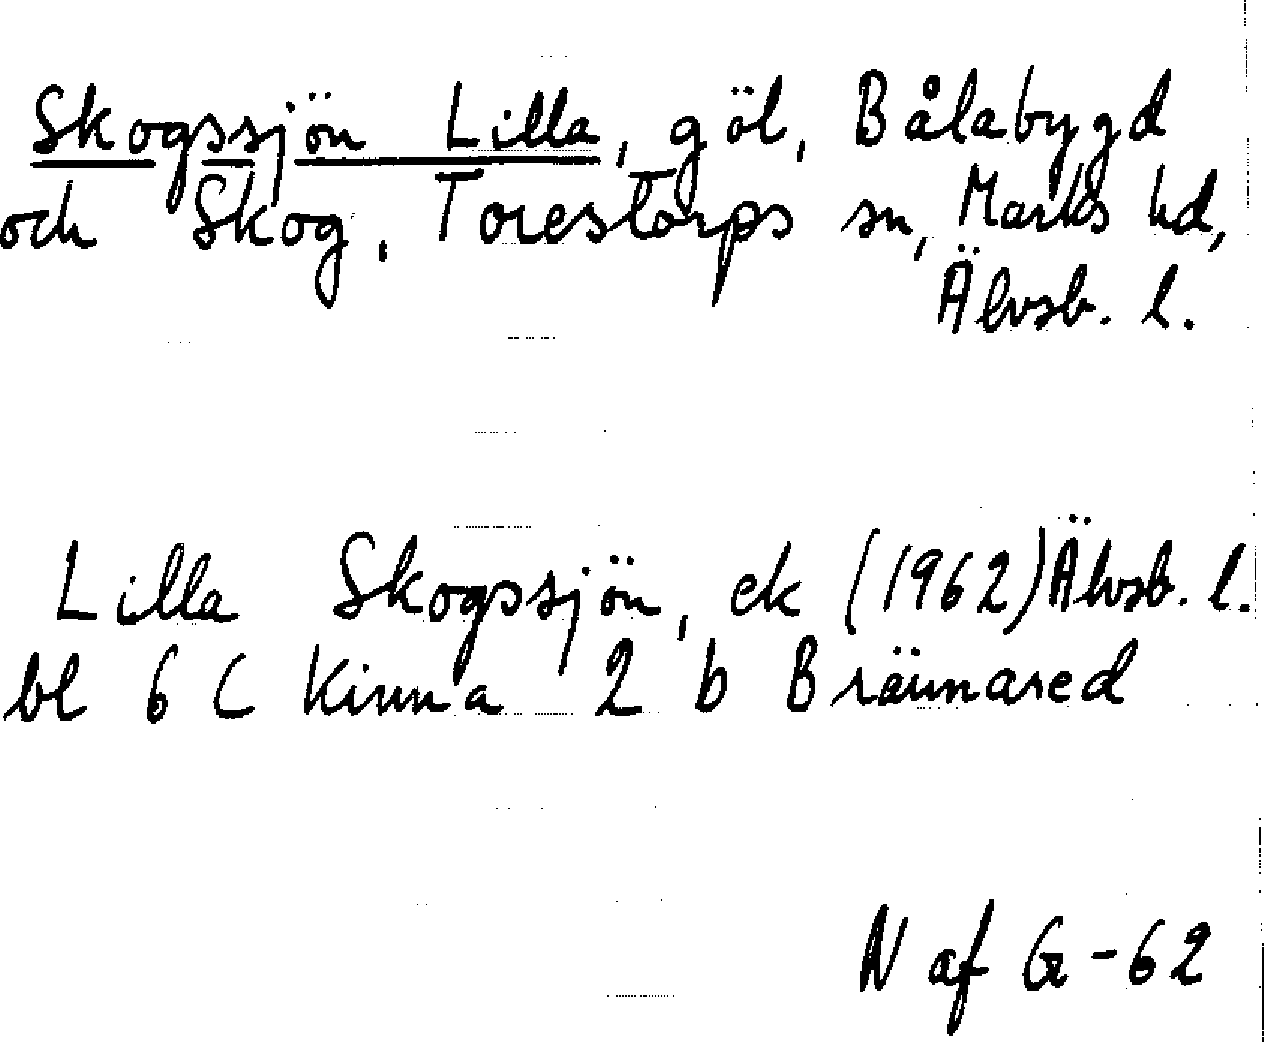 Skogssjön Lilla, göl, Bålabygd
och Skog, Torestorps sn, Marks hd,
Älvsb. l.
Lilla Skogssjön, ek (1962) Älvsb. l.
bl 6 C Kinna 2 b Brännared
N af G-62